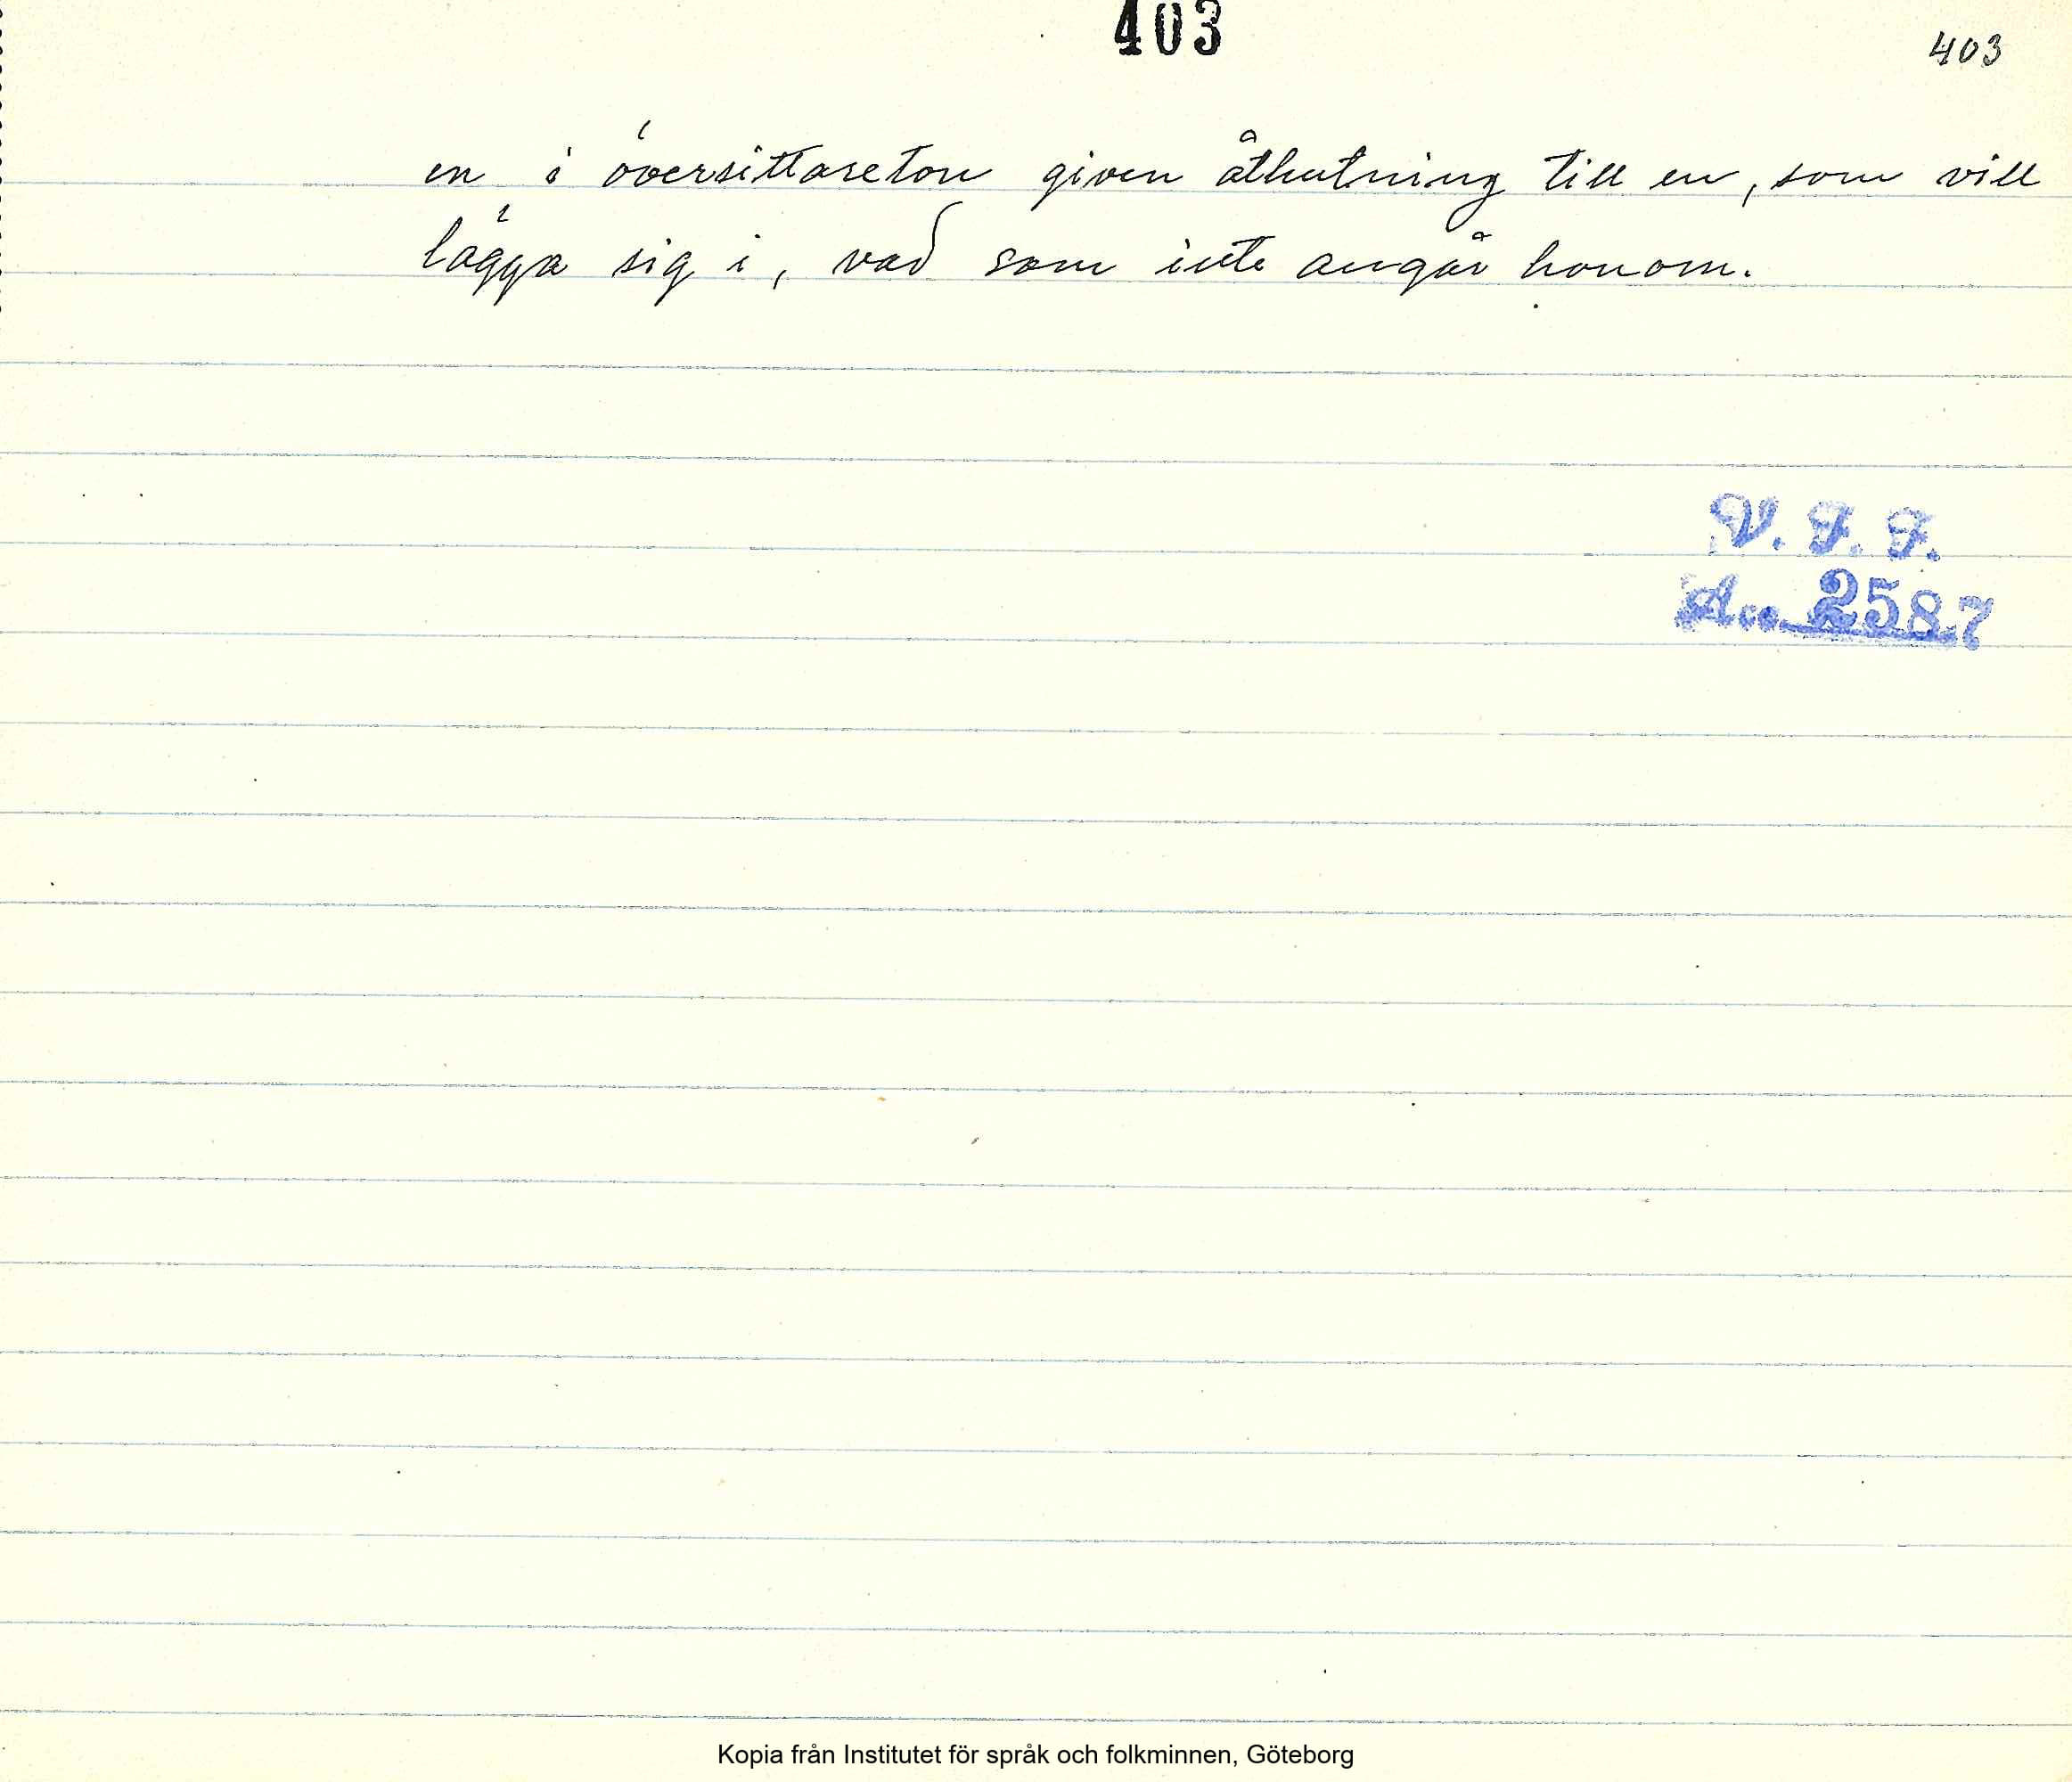 403
403
en i översittareton given åthutning till en, som vill
lägga sig i, vad som inte angår honom.
V. F. F.
Acc. 2587
Kopia från Institutet för språk och folkminnen, Göteborg